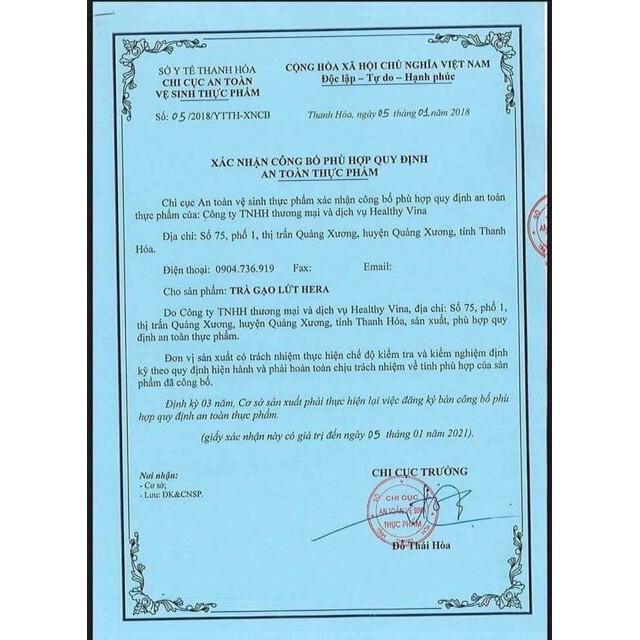 SỞ Y TẾ THANH HÓA
CHI CỤC AN TOÀN
VỆ SINH THỰC PHẨM
Số: 05/2018/YTTH-XNCB
CỘNG HÒA XÃ HỘI CHỦ NGHĨA VIỆT NAM
Độc lập – Tự do – Hạnh phúc
Thanh Hóa, ngày 05 tháng 01 năm 2018
XÁC NHẬN CÔNG BỐ PHÙ HỢP QUY ĐỊNH
AN TOÀN THỰC PHẨM
Chi cục An toàn vệ sinh thực phẩm xác nhận công bố phù hợp quy định an toàn
thực phẩm của: Công ty TNHH thương mại và dịch vụ Healthy Vina
Địa chỉ: Số 75, phố 1, thị trấn Quảng Xương, huyện Quảng Xương, tỉnh Thanh
Hóa.
Điện thoại: 0904.736.919 Fax: Email:
Cho sản phẩm: TRÀ GẠO LỨT HERA
Do Công ty TNHH thương mại và dịch vụ Healthy Vina, địa chỉ: Số 75, phố 1,
thị trấn Quảng Xương, huyện Quảng Xương, tỉnh Thanh Hóa, sản xuất, phù hợp quy
định an toàn thực phẩm.
Đơn vị sản xuất có trách nhiệm thực hiện chế độ kiểm tra và kiểm nghiệm định
kỳ theo quy định hiện hành và phải hoàn toàn chịu trách nhiệm về tính phù hợp của sản
phẩm đã công bố.
Định kỳ 03 năm, Cơ sở sản xuất phải thực hiện lại việc đăng ký bản công bố phù
hợp quy định an toàn thực phẩm.
(giấy xác nhận này có giá trị đến ngày 05 tháng 01 năm 2021).
Nơi nhận:
- Cơ sở;
- Lưu: ĐK&CNSP.
CHI CỤC TRƯỞNG
CHI CỤC
AN TOÀN VỆ SINH
THỰC PHẨM
Đỗ Thái Hòa